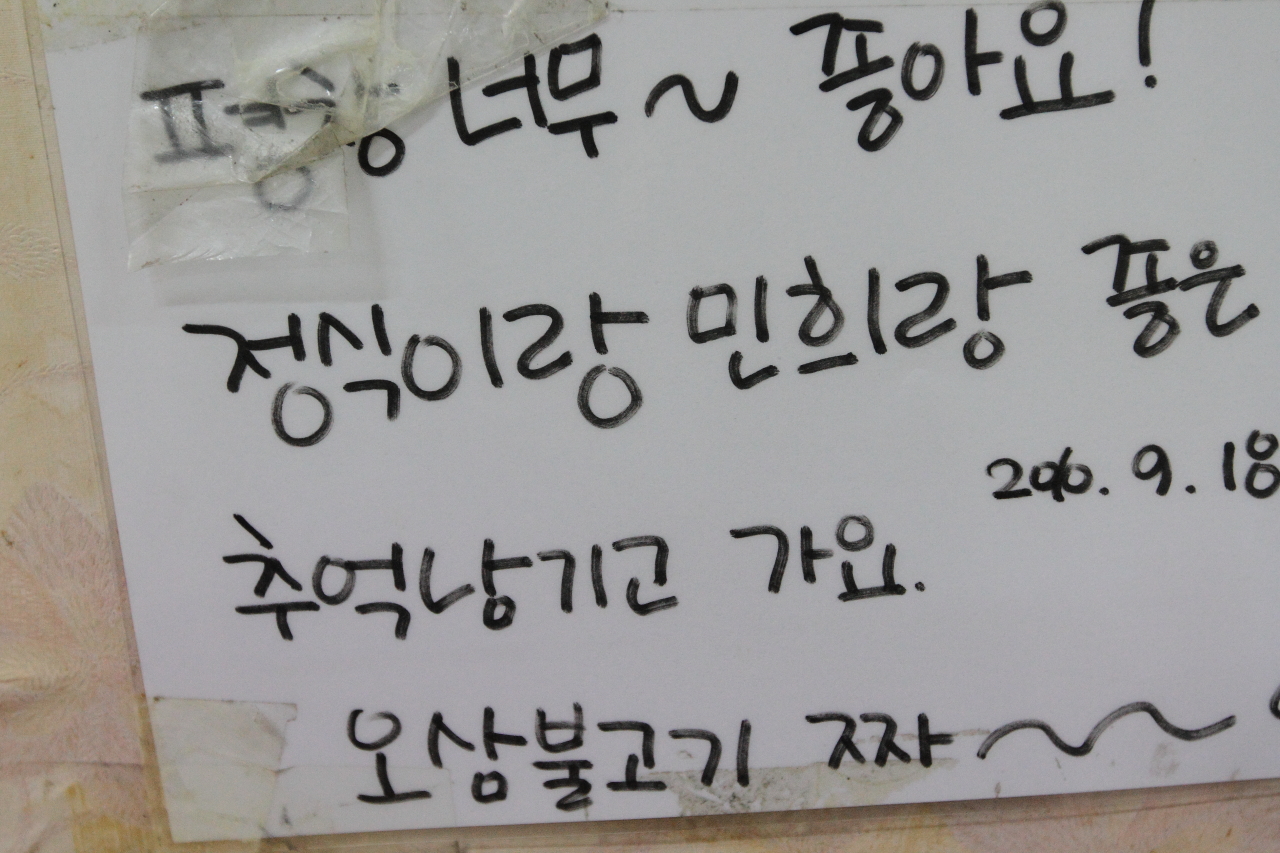 너무~ 좋아요!
정식이랑 민희랑 좋은
2010. 9. 18
추억남기고 가요.
오삼불고기 짜~~